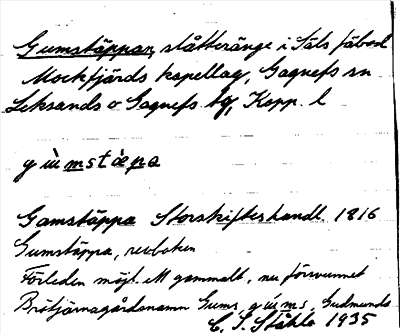 Gumstäppan, slåtteränge i Säls fäbod
Mockfjärds kapellag, Gagnefs sn
Leksands o Gagnefs tg, Kopp. l
gùmstæ̀pa
Gamstäppa Storskifteshandl. 1816
Gumstäppa, revboken
Förleden möjl. ett gammalt, nu försvunnet
Brötjärnagårdsnamn Gums, gùms, Gudmunds
C. I. Ståhle 1935